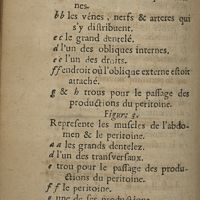 nes.
b b les vénes, nerfs & arteres qui
s'y distribuent.
c c le grand dentelé.
d l'un des obliques internes.
e e l'un des droits.
f f endroit où l'oblique externe estoit
attaché.
g & h trous pour le passage des
productions du peritoine.
Figure 3.
Represente les muscles de l'abdo-
men & le peritoine.
a a les grands dentelez.
d l'un des transversaux.
e trou pour le passage des produ-
ctions du peritoine.
f f le peritoine.
g une de ses productions